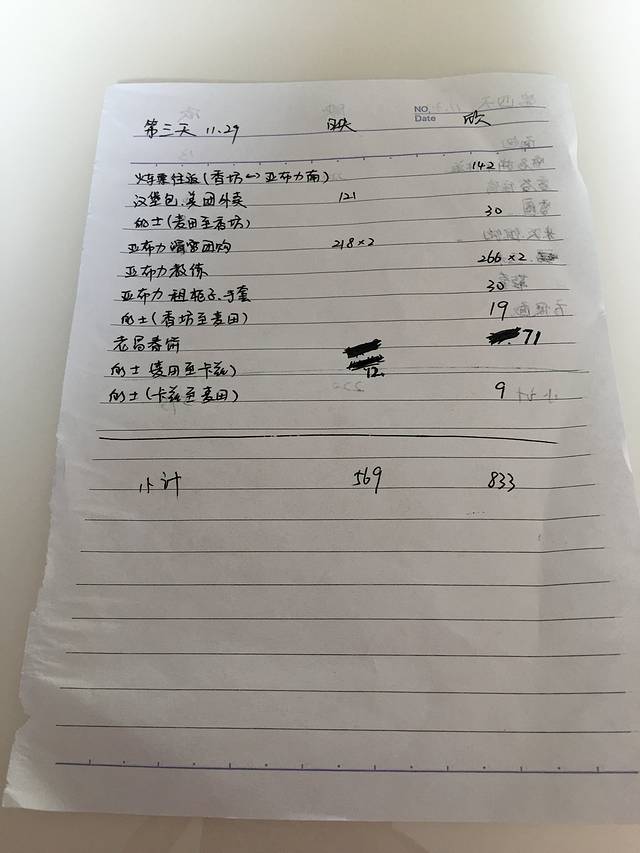 NO.
Date
第三天 11.29 映 欣
火车票往返(香坊↔亚布力南) 142
汉堡包、美团外卖 121
的士(麦田至香坊) 30
亚布力滑雪团购 218×2
亚布力教练 266×2
亚布力租柜子、手套 30
的士(香坊至麦田) 19
老昌春饼 71
的士(麦田至卡兹) 12.
的士(卡兹至麦田) 9
小计 569 833